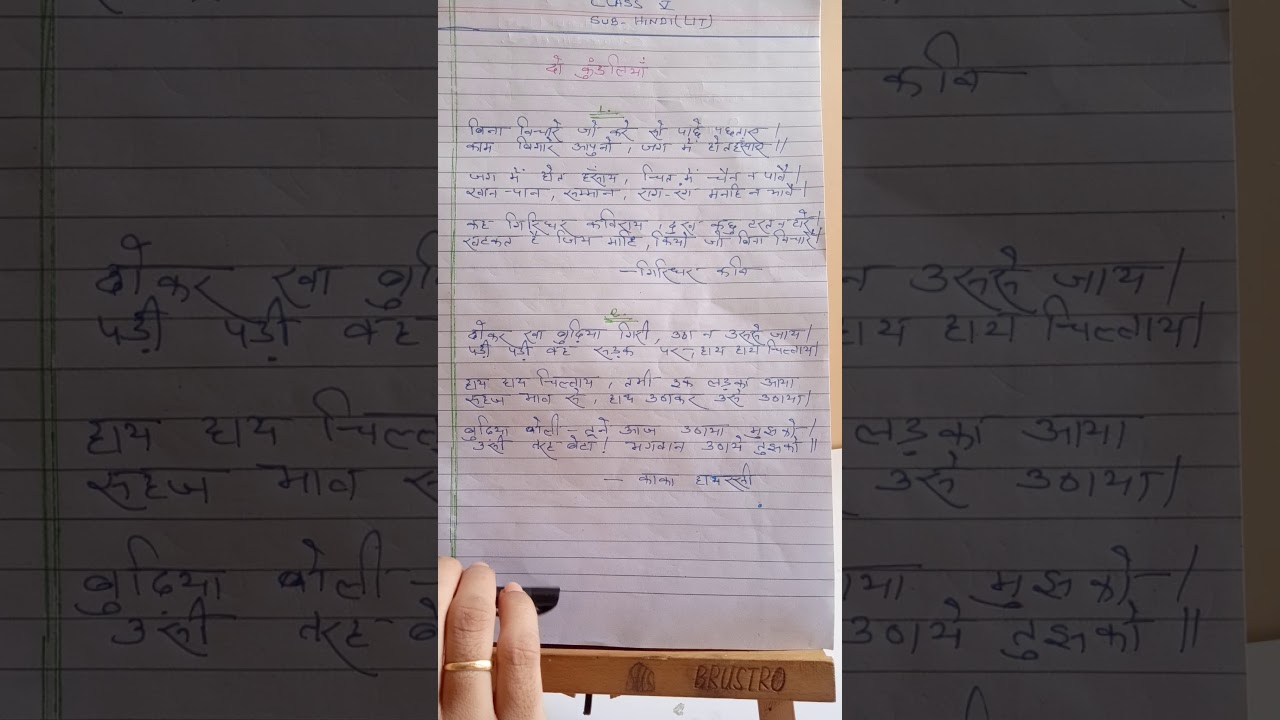 CLASS V
SUB- HINDI(LIT)
दो कुंडलियाँ
1.
बिना विचारे जो करे सो पाछे पछताए।
काम बिगारे आपुनो, जग में होत हंसाए॥
जग में होत हंसाय, चित में चैन न पावै।
खान-पान, सम्मान, राग-रंग मनहि न भावै।
कह गिरिधर कविराय, दुख कछु टरत न टारे।
खटकत है जिय माहि, कियो जो बिना विचारे।
— गिरिधर कवि
2.
ठोकर खा बुढ़िया गिरी, उठा न उससे जाय।
पड़ी पड़ी वह सड़क पर, हाय हाय चिल्लाय।
हाय हाय चिल्लाय, तभी इक लड़का आया
सहज भाव से, हाथ उठाकर उसे उठाया।
बुढ़िया बोली - तूने आज उठाया मुझको।
उसी तरह बेटा! भगवान उठाये तुझको॥
— काका हाथरसी
BRUSTRO